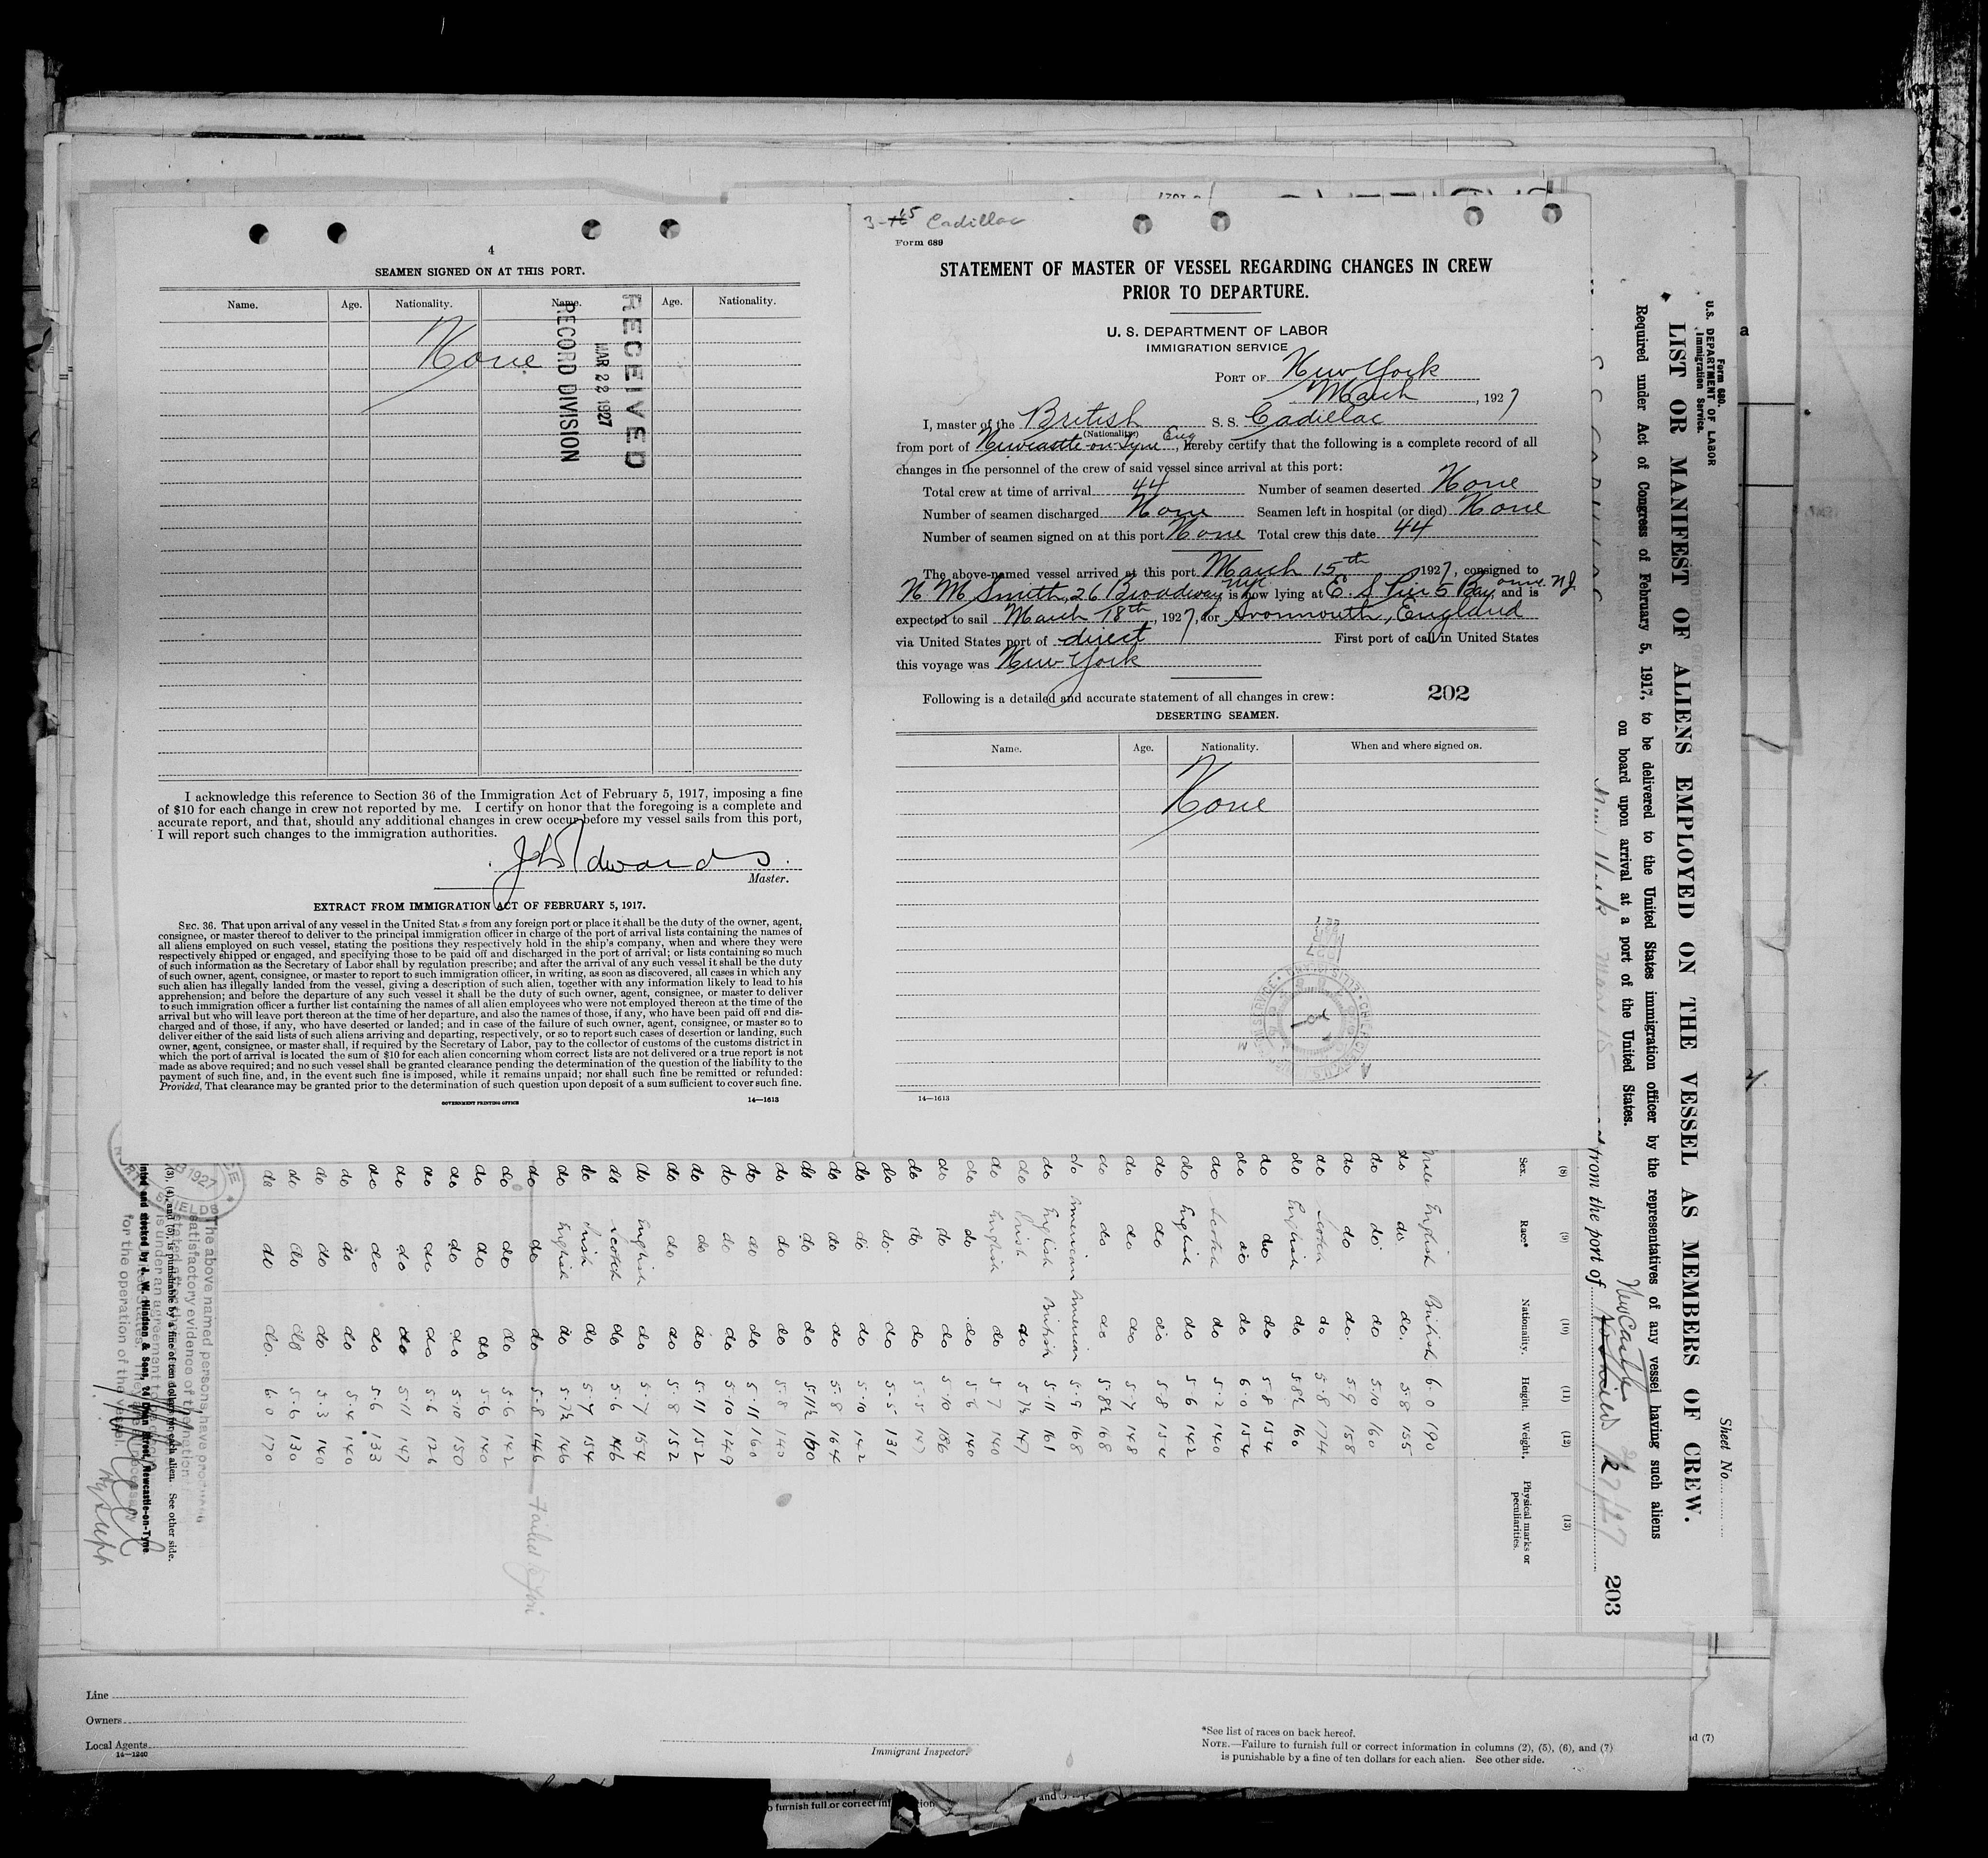 4
SEAMEN SIGNED ON AT THIS PORT.
Name. Age. Nationality. Name. Age. Nationality.
None
RECEIVED
MAR 22 1927
RECORD DIVISION
I acknowledge this reference to Section 36 of the Immigration Act of February 5, 1917, imposing a fine
of $10 for each change in crew not reported by me. I certify on honor that the foregoing is a complete and
accurate report, and that, should any additional changes in crew occur before my vessel sails from this port,
I will report such changes to the immigration authorities.
Edwards.
Master.
EXTRACT FROM IMMIGRATION ACT OF FEBRUARY 5, 1917.
SEC. 36. That upon arrival of any vessel in the United States from any foreign port or place it shall be the duty of the owner, agent,
consignee, or master thereof to deliver to the principal immigration officer in charge of the port of arrival lists containing the names of
all aliens employed on such vessel, stating the positions they respectively hold in the ship's company, when and where they were
respectively shipped or engaged, and specifying those to be paid off and discharged in the port of arrival; or lists containing so much
of such information as the Secretary of Labor shall by regulation prescribe; and after the arrival of any such vessel it shall be the duty
of such owner, agent, consignee, or master to report to such immigration officer, in writing, as soon as discovered, all cases in which any
such alien has illegally landed from the vessel, giving a description of such alien, together with any information likely to lead to his
apprehension; and before the departure of any such vessel it shall be the duty of such owner, agent, consignee, or master to deliver
to such immigration officer a further list containing the names of all alien employees who were not employed thereon at the time of the
arrival but who will leave port thereon at the time of her departure, and also the names of those, if any, who have been paid off and dis-
charged and of those, if any, who have deserted or landed; and in case of the failure of such owner, agent, consignee, or master so to
deliver either of the said lists of such aliens arriving and departing, respectively, or so to report such cases of desertion or landing, such
owner, agent, consignee, or master shall, if required by the Secretary of Labor, pay to the collector of customs of the customs district in
which the port of arrival is located the sum of $10 for each alien concerning whom correct lists are not delivered or a true report is not
made as above required; and no such vessel shall be granted clearance pending the determination of the question of the liability to the
payment of such fine, and, in the event such fine is imposed, while it remains unpaid; nor shall such fine be remitted or refunded:
Provided, That clearance may be granted prior to the determination of such question upon deposit of a sum sufficient to cover such fine.
GOVERNMENT PRINTING OFFICE 14—1613
3-15 Cadillac
Form 689
STATEMENT OF MASTER OF VESSEL REGARDING CHANGES IN CREW
PRIOR TO DEPARTURE.
U. S. DEPARTMENT OF LABOR
IMMIGRATION SERVICE
PORT OF New York
March, 1927
I, master of the British S. S. Cadillac
(Nationality)
from port of Newcastle-on-Tyne Eng, hereby certify that the following is a complete record of all
changes in the personnel of the crew of said vessel since arrival at this port:
Total crew at time of arrival 44 Number of seamen deserted None
Number of seamen discharged None Seamen left in hospital (or died) None
Number of seamen signed on at this port None Total crew this date 44
The above-named vessel arrived at this port March 15th 1927, consigned to
N M Smith, 26 Broadway NYC is now lying at E. S Pier 5 Bayonne NJ and is
expected to sail March 18th, 1927, for Avonmouth, England
via United States port of direct First port of call in United States
this voyage was New York
Following is a detailed and accurate statement of all changes in crew: 202
DESERTING SEAMEN.
Name. Age. Nationality. When and where signed on.
None
14—1613
Sheet No.
Form 680.
U.S. DEPARTMENT OF LABOR
Immigration Service.
LIST OR MANIFEST OF ALIENS EMPLOYED ON THE VESSEL AS MEMBERS OF CREW.
Required under Act of Congress of February 5, 1917, to be delivered to the United States immigration officer by the representatives of any vessel having such aliens
on board upon arrival at a port of the United States.
from the port of Newcastle 2/27/27
203
(8) (9) (10) (11) (12) (13)
Sex. Race.* Nationality. Height. Weight. Physical marks or peculiarities.
English British 6-0 190
do do do 5-8 155
do do do 5-10 160
do do do 5-9 158
do Scotch do 5-8 174
do English do 5-8½ 160
do do do 5-8 154
do do do 6-0 154
do Scotch do 5-2 140
do English do 5-6 142
do do do 5-8 154
do do do 5-7 148
do do do 5-8½ 168
do American American 5-9 168
do English British 5-11 161
do Irish do 5-7½ 147
do English do 5-7 140
do do do 5-6 140
do do do 5-10 186
do do do 5-5 147
do do do 5-5 131
do do do 5-10 142
do do do 5-8 164
do do do 5-11½ 160
do do do 5-8 140
do do do 5-11 160
do do do 5-10 149
do do do 5-11 152
do do do 5-8 152
do English do 5-7 154
do Scotch do 5-6 146
do Irish do 5-7 154
do English do 5-7½ 146
do do do 5-8 146 Failed to Join
do do do 5-6 142
do do do 5-6 140
do do do 5-10 150
do do do 5-6 126
do do do 5-11 147
do do do 5-6 133
do do do 5-4 140
do do do 5-3 140
do do do 5-6 130
do do do 6-0 170
The above named persons have produced
satisfactory evidence of
is under an agreement to
for the operation of the vessel.
(3), (4), and (5), is punishable by a fine of ten dollars for each alien. See other side.
J. W. Hindson & Sons, 24 Dean Street, Newcastle-on-Tyne
1927
Line
Owners
Local Agents
14—1240
Immigrant Inspector.
*See list of races on back hereof.
NOTE.—Failure to furnish full or correct information in columns (2), (5), (6), and (7)
is punishable by a fine of ten dollars for each alien. See other side.
nd (7)
o furnish full or correct